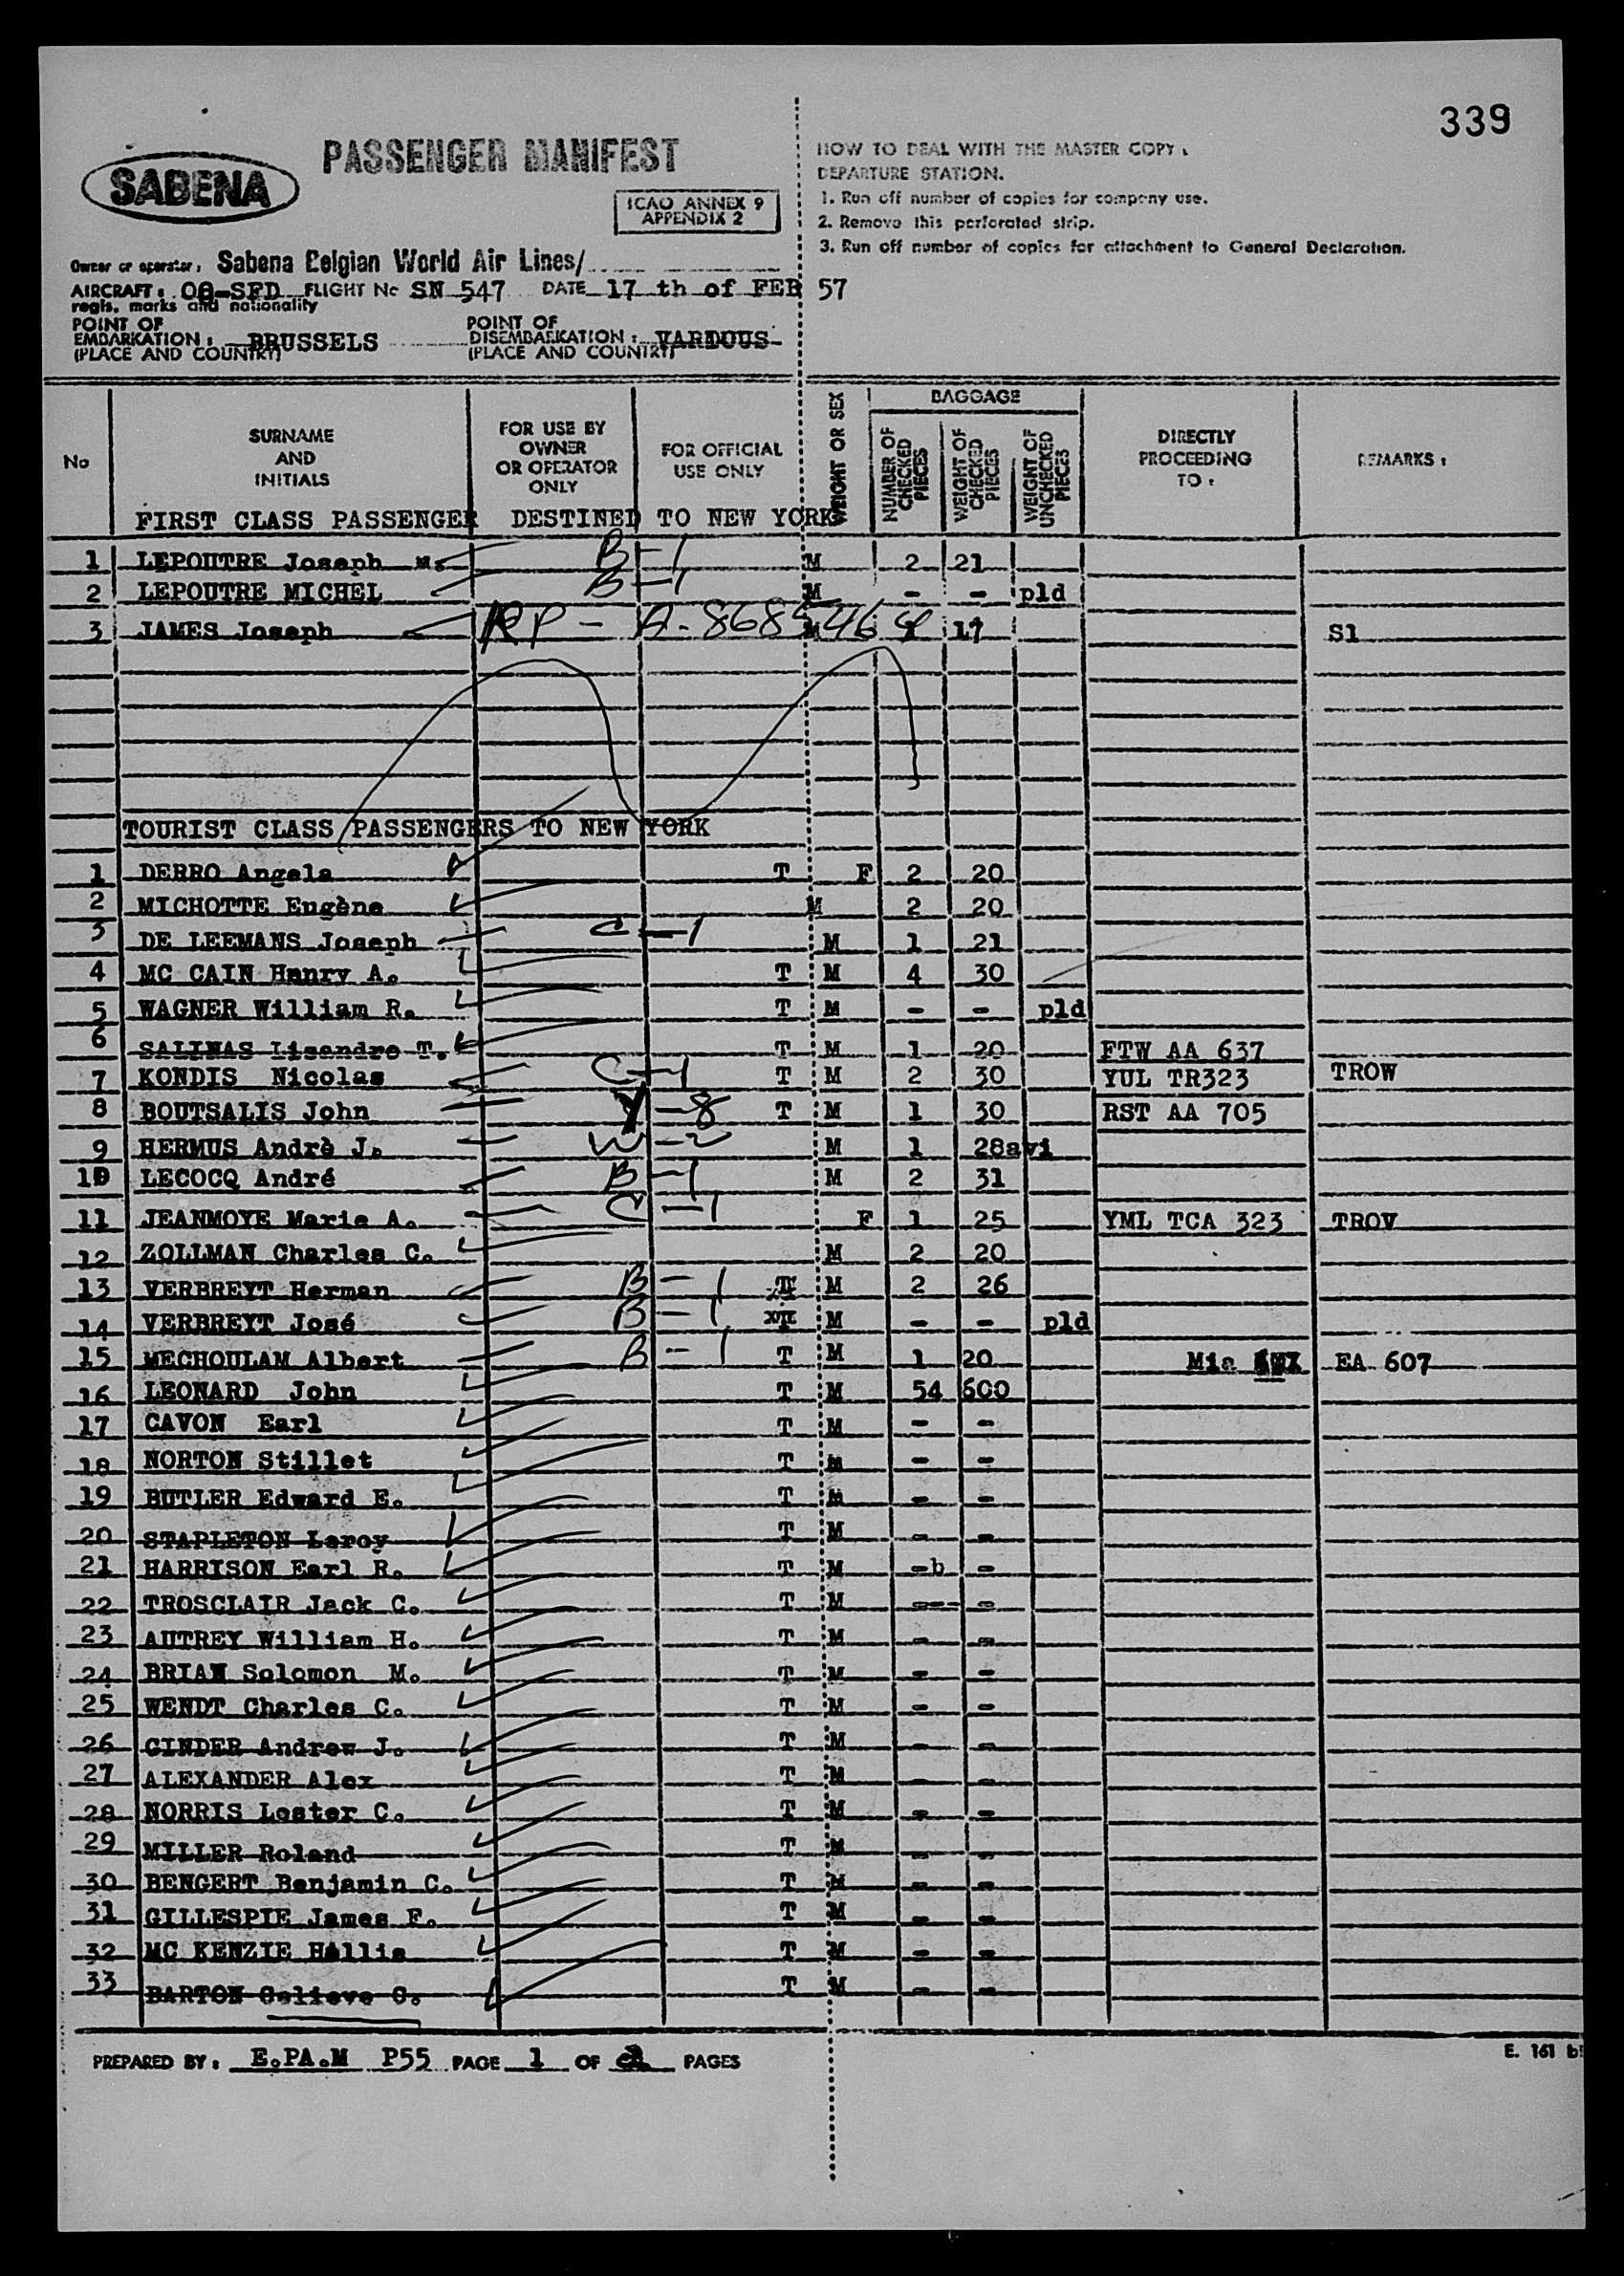 339
PASSENGER MANIFEST
SABENA
ICAO ANNEX 9
APPENDIX 2
HOW TO DEAL WITH THE MASTER COPY :
DEPARTURE STATION.
1. Run off number of copies for company use.
2. Remove this perforated strip.
3. Run off number of copies for attachment to General Declaration.
Owner or operator: Sabena Belgian World Air Lines/
AIRCRAFT: OO-SFD FLIGHT No SN 547 DATE 17 th of FEB 57
regis. marks and nationality
POINT OF EMBARKATION: BRUSSELS (PLACE AND COUNTRY)
POINT OF DISEMBARKATION: VARIOUS (PLACE AND COUNTRY)
No
SURNAME AND INITIALS
FOR USE BY OWNER OR OPERATOR ONLY
FOR OFFICIAL USE ONLY
WEIGHT OR SEX
BAGGAGE
NUMBER OF CHECKED PIECES
WEIGHT OF CHECKED PIECES
WEIGHT OF UNCHECKED PIECES
DIRECTLY PROCEEDING TO :
REMARKS :
FIRST CLASS PASSENGER DESTINED TO NEW YORK
1 LEPOUTRE Joseph M. B-1 M 2 21
2 LEPOUTRE MICHEL B-1 M - - pld
3 JAMES Joseph RP - A-8685464 17 S1
TOURIST CLASS PASSENGERS TO NEW YORK
1 DERRO Angela T F 2 20
2 MICHOTTE Eugène M 2 20
3 DE LEEMANS Joseph C-1 M 1 21
4 MC CAIN Henry A. T M 4 30
5 WAGNER William R. T M - - pld
6 SALINAS Lisandro T. T M 1 20 FTW AA 637
7 KONDIS Nicolas C-1 T M 2 30 YUL TR323 TROW
8 BOUTSALIS John Y-8 T M 1 30 RST AA 705
9 HERMUS Andrè J. W-2 M 1 28avi
10 LECOCQ André B-1 M 2 31
11 JEANMOYE Marie A. C-1 F 1 25 YML TCA 323 TROV
12 ZOLLMAN Charles C. M 2 20
13 VERBREYT Herman B-1 M 2 26
14 VERBREYT José B-1 M - - pld
15 MECHOULAM Albert B-1 T M 1 20 Mia EA 607
16 LEONARD John T M 54 600
17 CAVON Earl T M - -
18 NORTON Stillet T M - -
19 BUTLER Edward E. T M - -
20 STAPLETON Leroy T M - -
21 HARRISON Earl R. T M -b -
22 TROSCLAIR Jack C. T M --- -
23 AUTREY William H. T M - -
24 BRIAN Solomon M. T M - -
25 WENDT Charles C. T M - -
26 GINDER Andrew J. T M - -
27 ALEXANDER Alex T M - -
28 NORRIS Lester C. T M - -
29 MILLER Roland T M - -
30 BENGERT Benjamin C. T M - -
31 GILLESPIE James F. T M - -
32 MC KENZIE Hallie T M - -
33 BARTON T M - -
PREPARED BY: E.PA.M P55 PAGE 1 OF 2 PAGES
E. 161 b